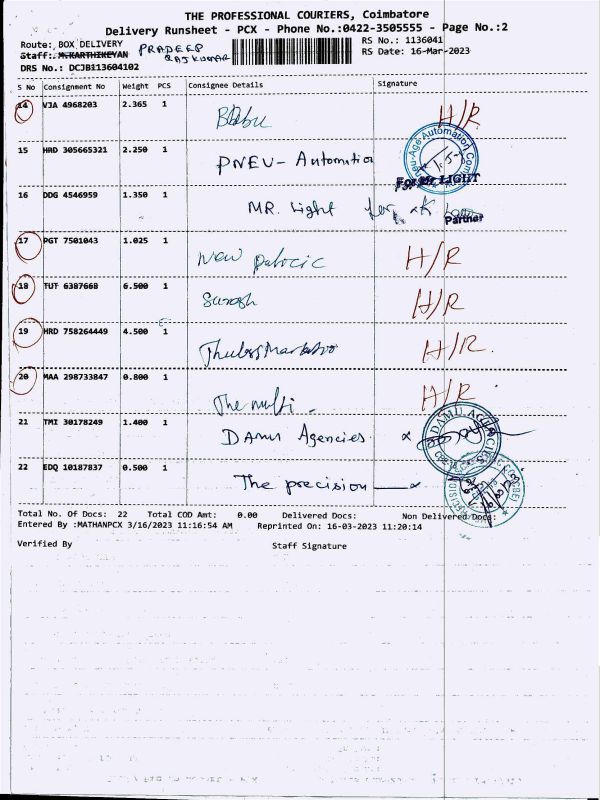 THE PROFESSIONAL COURIERS, Coimbatore
Delivery Runsheet - PCX - Phone No.:0422-3505555 - Page No.:2
Route: BOX DELIVERY
PRADEEP
RS No.: 1136041
Staff: M.KARTHIKEYAN
RAJKUMAR
RS Date: 16-Mar-2023
DRS No.: DCJB113604102
S No Consignment No Weight PCS Consignee Details Signature
14 VJA 4968203 2.365 1 Babu H/R
15 HRD 305665321 2.250 1 PNEU-Automation
For Mr. LIGHT
16 DDG 4546959 1.350 1 MR. Light
Partner
17 PGT 7501043 1.025 1 New H/R
18 TUT 6387668 6.500 1 Suresh H/R
19 HRD 758264449 4.500 1 H/R.
20 MAA 298733847 0.800 1 The multi H/R
21 TMI 30178249 1.400 1 DAMU Agencies
DAMU AGENCIES
22 EDQ 10187837 0.500 1 The precision
Total No. Of Docs: 22 Total COD Amt: 0.00 Delivered Docs: Non Delivered Docs:
Entered By :MATHANPCX 3/16/2023 11:16:54 AM Reprinted On: 16-03-2023 11:20:14
Verified By Staff Signature